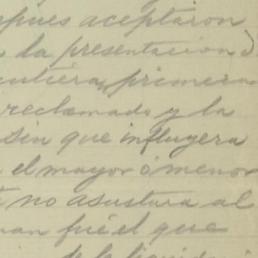 pues aceptaron
la presentacion
primera
reclamado y la
sin que influyera
el mayor ó menor
no asustura al
fué el que
de la